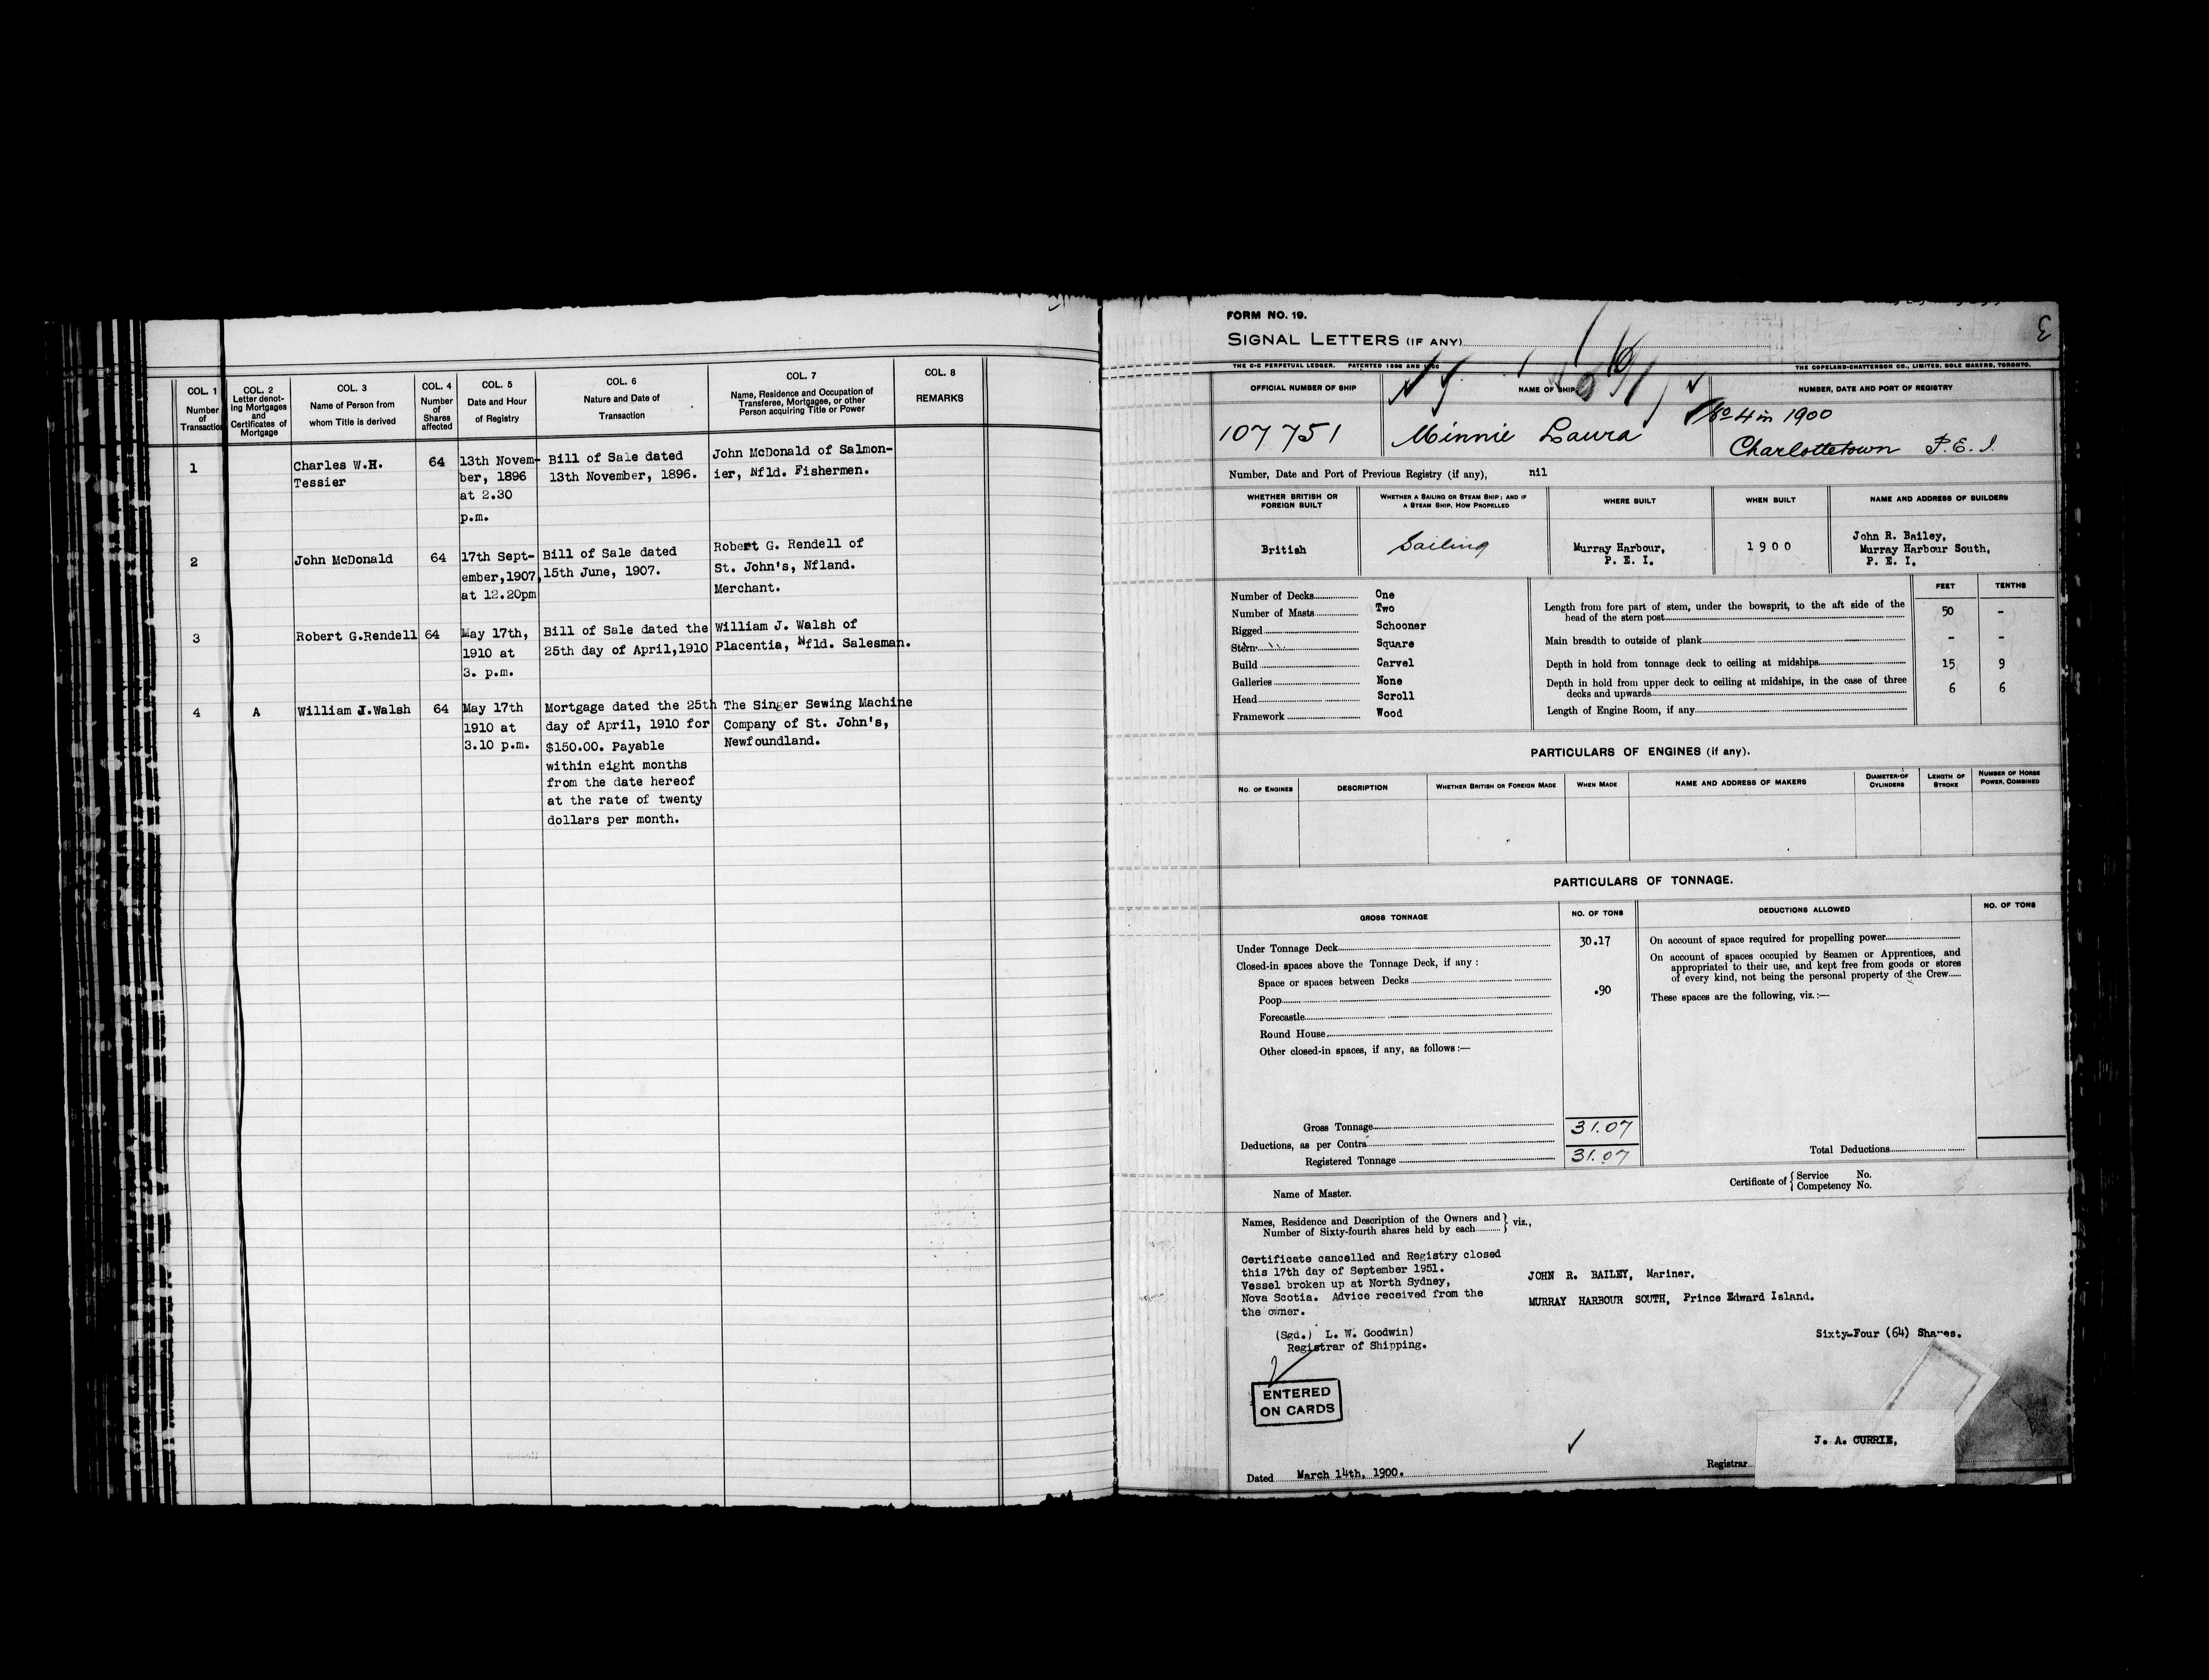 COL. 1
Number
of
Transaction
COL. 2
Letter denot-
ing Mortgages
and
Certificates of
Mortgage
COL. 3
Name of Person from
whom Title is derived
COL. 4
Number
of
Shares
affected
COL. 5
Date and Hour
of Registry
COL. 6
Nature and Date of
Transaction
COL. 7
Name, Residence and Occupation of
Transferee, Mortgagee, or other
Person acquiring Title or Power
COL. 8
REMARKS
1
Charles W.H.
Tessier
64
13th Novem-
ber, 1896
at 2.30
p.m.
Bill of Sale dated
13th November, 1896.
John McDonald of Salmon-
ier, Nfld. Fishermen.
2
John McDonald
64
17th Sept-
ember,1907,
at 12.20pm
Bill of Sale dated
15th June, 1907.
Robert G. Rendell of
St. John's, Nfland.
Merchant.
3
Robert G.Rendell
64
May 17th,
1910 at
3. p.m.
Bill of Sale dated the
25th day of April,1910
William J. Walsh of
Placentia, Nfld. Salesman.
4
A
William J.Walsh
64
May 17th
1910 at
3.10 p.m.
Mortgage dated the 25th
day of April, 1910 for
$150.00. Payable
within eight months
from the date hereof
at the rate of twenty
dollars per month.
The Singer Sewing Machine
Company of St. John's,
Newfoundland.
FORM NO. 19.
SIGNAL LETTERS (IF ANY)
THE C-C PERPETUAL LEDGER. PATENTED 1896 AND 1900
THE COPELAND-CHATTERSON CO., LIMITED, SOLE MAKERS, TORONTO.
OFFICIAL NUMBER OF SHIP
NAME OF SHIP
NUMBER, DATE AND PORT OF REGISTRY
107751
Minnie Laura
No 4 in 1900
Charlottetown P.E.I.
Number, Date and Port of Previous Registry (if any), nil
WHETHER BRITISH OR
FOREIGN BUILT
WHETHER A SAILING OR STEAM SHIP; AND IF
A STEAM SHIP, HOW PROPELLED
WHERE BUILT
WHEN BUILT
NAME AND ADDRESS OF BUILDERS
British
Sailing
Murray Harbour,
P. E. I.
1900
John R. Bailey,
Murray Harbour South,
P. E. I.
FEET
TENTHS
Number of Decks One
Number of Masts Two
Rigged Schooner
Stern Square
Build Carvel
Galleries None
Head Scroll
Framework Wood
Length from fore part of stem, under the bowsprit, to the aft side of the
head of the stern post 50 -
Main breadth to outside of plank - -
Depth in hold from tonnage deck to ceiling at midships 15 9
Depth in hold from upper deck to ceiling at midships, in the case of three
decks and upwards 6 6
Length of Engine Room, if any
PARTICULARS OF ENGINES (if any).
NO. OF ENGINES
DESCRIPTION
WHETHER BRITISH OR FOREIGN MADE
WHEN MADE
NAME AND ADDRESS OF MAKERS
DIAMETER OF
CYLINDERS
LENGTH OF
STROKE
NUMBER OF HORSE
POWER, COMBINED
PARTICULARS OF TONNAGE.
GROSS TONNAGE
NO. OF TONS
DEDUCTIONS ALLOWED
NO. OF TONS
Under Tonnage Deck 30.17
Closed-in spaces above the Tonnage Deck, if any :
Space or spaces between Decks
Poop .90
Forecastle
Round House
Other closed-in spaces, if any, as follows :—
Gross Tonnage 31.07
Deductions, as per Contra
Registered Tonnage 31.07
On account of space required for propelling power
On account of spaces occupied by Seamen or Apprentices, and
appropriated to their use, and kept free from goods or stores
of every kind, not being the personal property of the Crew
These spaces are the following, viz. :—
Total Deductions
Name of Master.
Certificate of { Service No.
Competency No.
Names, Residence and Description of the Owners and
Number of Sixty-fourth shares held by each } viz.,
Certificate cancelled and Registry closed
this 17th day of September 1951.
Vessel broken up at North Sydney,
Nova Scotia. Advice received from the
the owner.
(Sgd.) L. W. Goodwin)
Registrar of Shipping.
JOHN R. BAILEY, Mariner,
MURRAY HARBOUR SOUTH, Prince Edward Island.
Sixty-Four (64) Shares.
ENTERED
ON CARDS
J. A. CURRIE,
Dated March 14th, 1900.
Registrar